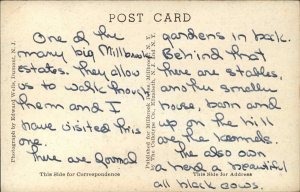 POST CARD
One of the
many big Millbrook
estates. They allow
us to walk through
them and I
have visited this
one.
There are formal
gardens in back.
Behind that
there are stables,
another smaller
house, barn and
up on the hill
are the kennels.
The also own
a herd a beautiful
all black cows.
Photograph by Edward Wolfe, Dumont, N. J.
Published for Millbrook
This Side for Correspondence
This Side for Address